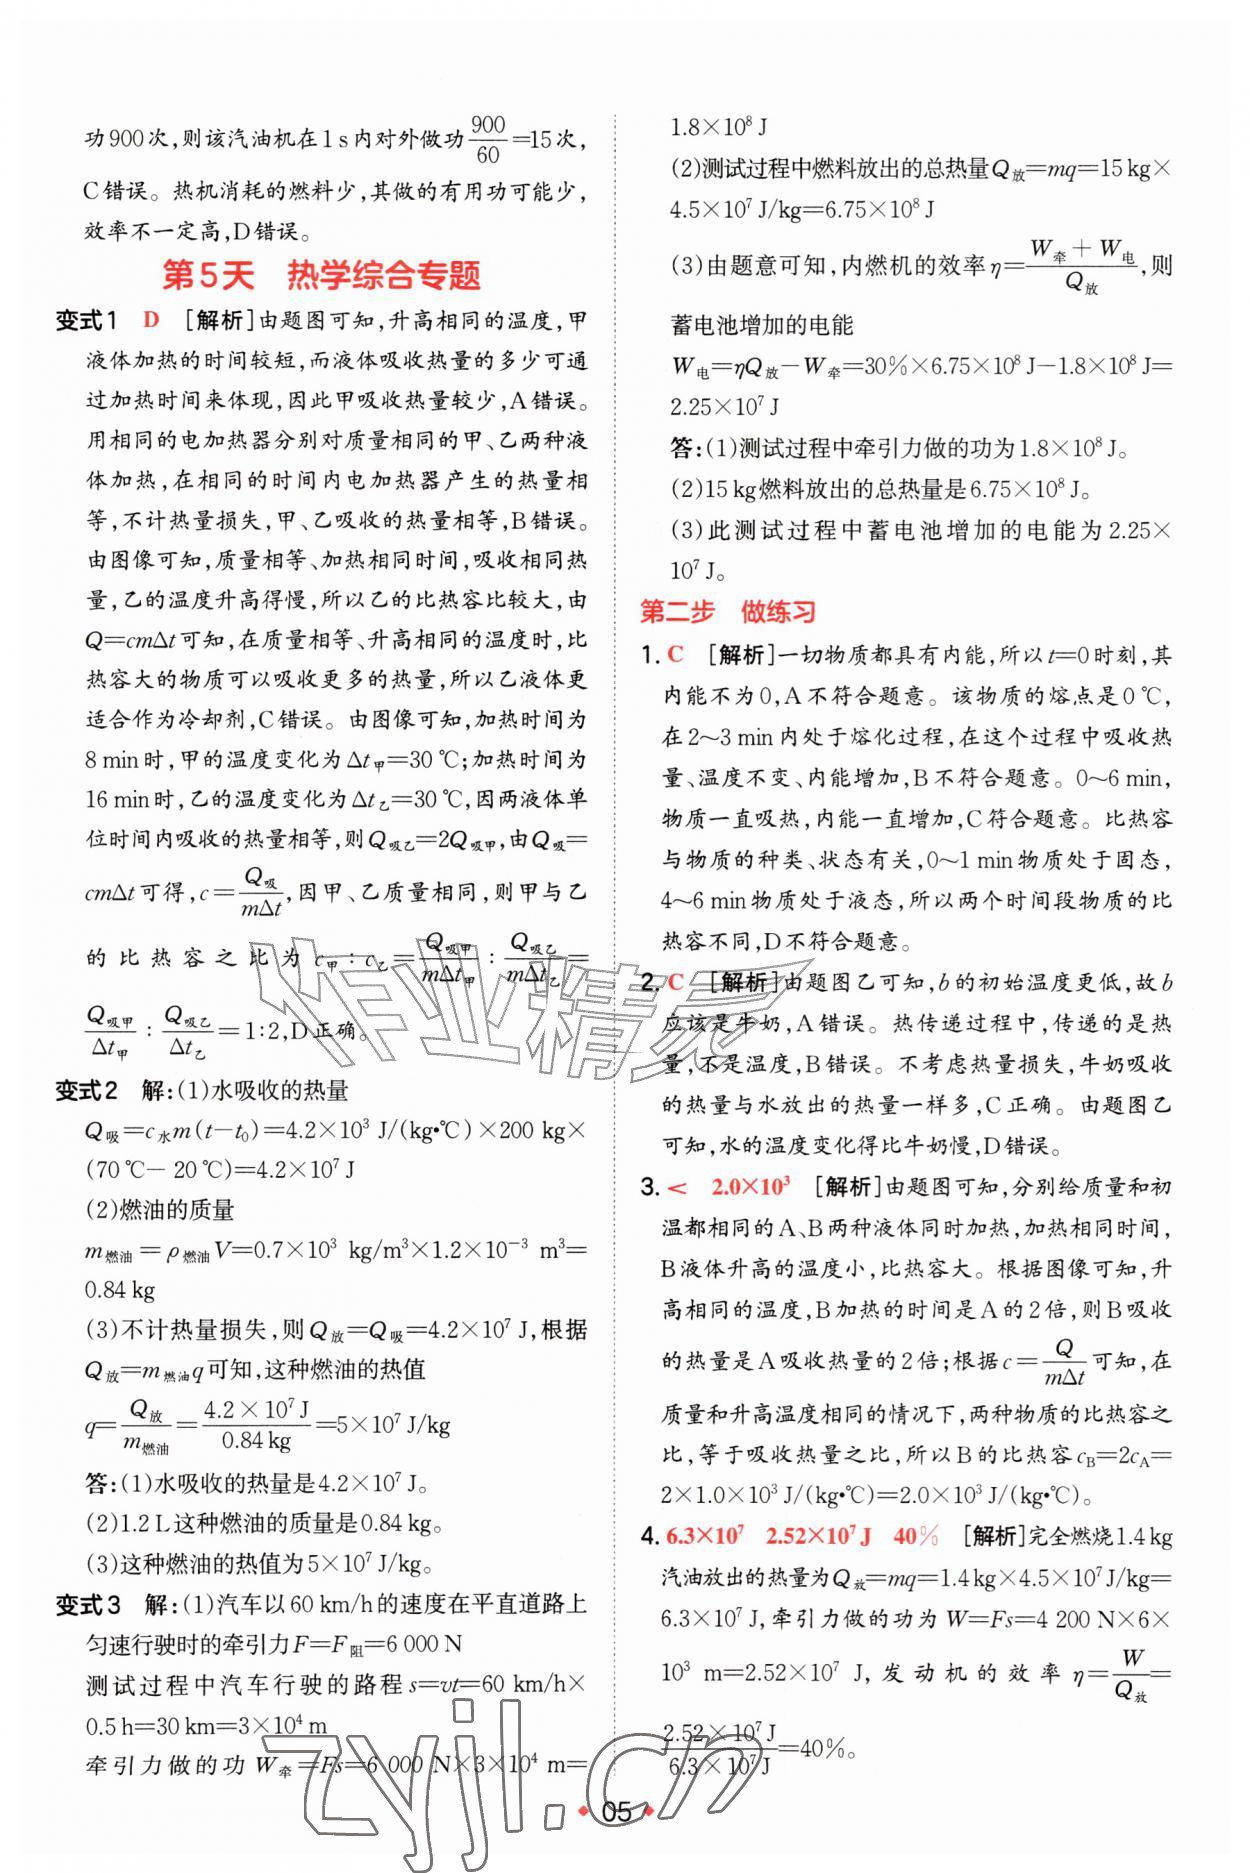 功900次,则该汽油机在1 s内对外做功900/60=15次,
C错误。热机消耗的燃料少,其做的有用功可能少,
效率不一定高,D错误。
第5天 热学综合专题
变式1 D [解析]由题图可知,升高相同的温度,甲
液体加热的时间较短,而液体吸收热量的多少可通
过加热时间来体现,因此甲吸收热量较少,A错误。
用相同的电加热器分别对质量相同的甲、乙两种液
体加热,在相同的时间内电加热器产生的热量相
等,不计热量损失,甲、乙吸收的热量相等,B错误。
由图像可知,质量相等、加热相同时间,吸收相同热
量,乙的温度升高得慢,所以乙的比热容比较大,由
Q=cmΔt可知,在质量相等、升高相同的温度时,比
热容大的物质可以吸收更多的热量,所以乙液体更
适合作为冷却剂,C错误。由图像可知,加热时间为
8 min时,甲的温度变化为Δt甲=30 ℃;加热时间为
16 min时,乙的温度变化为Δt乙=30 ℃,因两液体单
位时间内吸收的热量相等,则Q吸乙=2Q吸甲,由Q吸=
cmΔt可得,c=Q吸/mΔt,因甲、乙质量相同,则甲与乙
的比热容之比为 c甲:c乙=Q吸甲/mΔt甲:Q吸乙/mΔt乙=
Q吸甲/Δt甲:Q吸乙/Δt乙=1:2,D正确。
变式2 解:(1)水吸收的热量
Q吸=c水m(t-t₀)=4.2×10³ J/(kg•℃)×200 kg×
(70 ℃- 20 ℃)=4.2×10⁷ J
(2)燃油的质量
m燃油=ρ燃油V=0.7×10³ kg/m³×1.2×10⁻³ m³=
0.84 kg
(3)不计热量损失,则Q放=Q吸=4.2×10⁷ J,根据
Q放=m燃油q可知,这种燃油的热值
q=Q放/m燃油=4.2×10⁷ J/0.84 kg=5×10⁷ J/kg
答:(1)水吸收的热量是4.2×10⁷ J。
(2)1.2 L这种燃油的质量是0.84 kg。
(3)这种燃油的热值为5×10⁷ J/kg。
变式3 解:(1)汽车以60 km/h的速度在平直道路上
匀速行驶时的牵引力F=F阻=6 000 N
测试过程中汽车行驶的路程s=vt=60 km/h×
0.5 h=30 km=3×10⁴ m
牵引力做的功W牵=Fs=6 000 N×3×10⁴ m=
1.8×10⁸ J
(2)测试过程中燃料放出的总热量Q放=mq=15 kg×
4.5×10⁷ J/kg=6.75×10⁸ J
(3)由题意可知,内燃机的效率η=(W牵+W电)/Q放,则
蓄电池增加的电能
W电=ηQ放-W牵=30%×6.75×10⁸ J-1.8×10⁸ J=
2.25×10⁷ J
答:(1)测试过程中牵引力做的功为1.8×10⁸ J。
(2)15 kg燃料放出的总热量是6.75×10⁸ J。
(3)此测试过程中蓄电池增加的电能为2.25×
10⁷ J。
第二步 做练习
1. C [解析]一切物质都具有内能,所以t=0时刻,其
内能不为0,A不符合题意。该物质的熔点是0 ℃,
在2~3 min内处于熔化过程,在这个过程中吸收热
量、温度不变、内能增加,B不符合题意。0~6 min,
物质一直吸热,内能一直增加,C符合题意。比热容
与物质的种类、状态有关,0~1 min物质处于固态,
4~6 min物质处于液态,所以两个时间段物质的比
热容不同,D不符合题意。
2. C [解析]由题图乙可知,b的初始温度更低,故b
应该是牛奶,A错误。热传递过程中,传递的是热
量,不是温度,B错误。不考虑热量损失,牛奶吸收
的热量与水放出的热量一样多,C正确。由题图乙
可知,水的温度变化得比牛奶慢,D错误。
3. < 2.0×10³ [解析]由题图可知,分别给质量和初
温都相同的A、B两种液体同时加热,加热相同时间,
B液体升高的温度小,比热容大。根据图像可知,升
高相同的温度,B加热的时间是A的2倍,则B吸收
的热量是A吸收热量的2倍;根据c=Q/mΔt可知,在
质量和升高温度相同的情况下,两种物质的比热容之
比,等于吸收热量之比,所以B的比热容cB=2cA=
2×1.0×10³ J/(kg•℃)=2.0×10³ J/(kg•℃)。
4. 6.3×10⁷ 2.52×10⁷ J 40% [解析]完全燃烧1.4 kg
汽油放出的热量为Q放=mq=1.4 kg×4.5×10⁷ J/kg=
6.3×10⁷ J,牵引力做的功为W=Fs=4 200 N×6×
10³ m=2.52×10⁷ J,发动机的效率η=W/Q放=
2.52×10⁷ J/6.3×10⁷ J=40%。
05
作业精灵
zyjl.cn